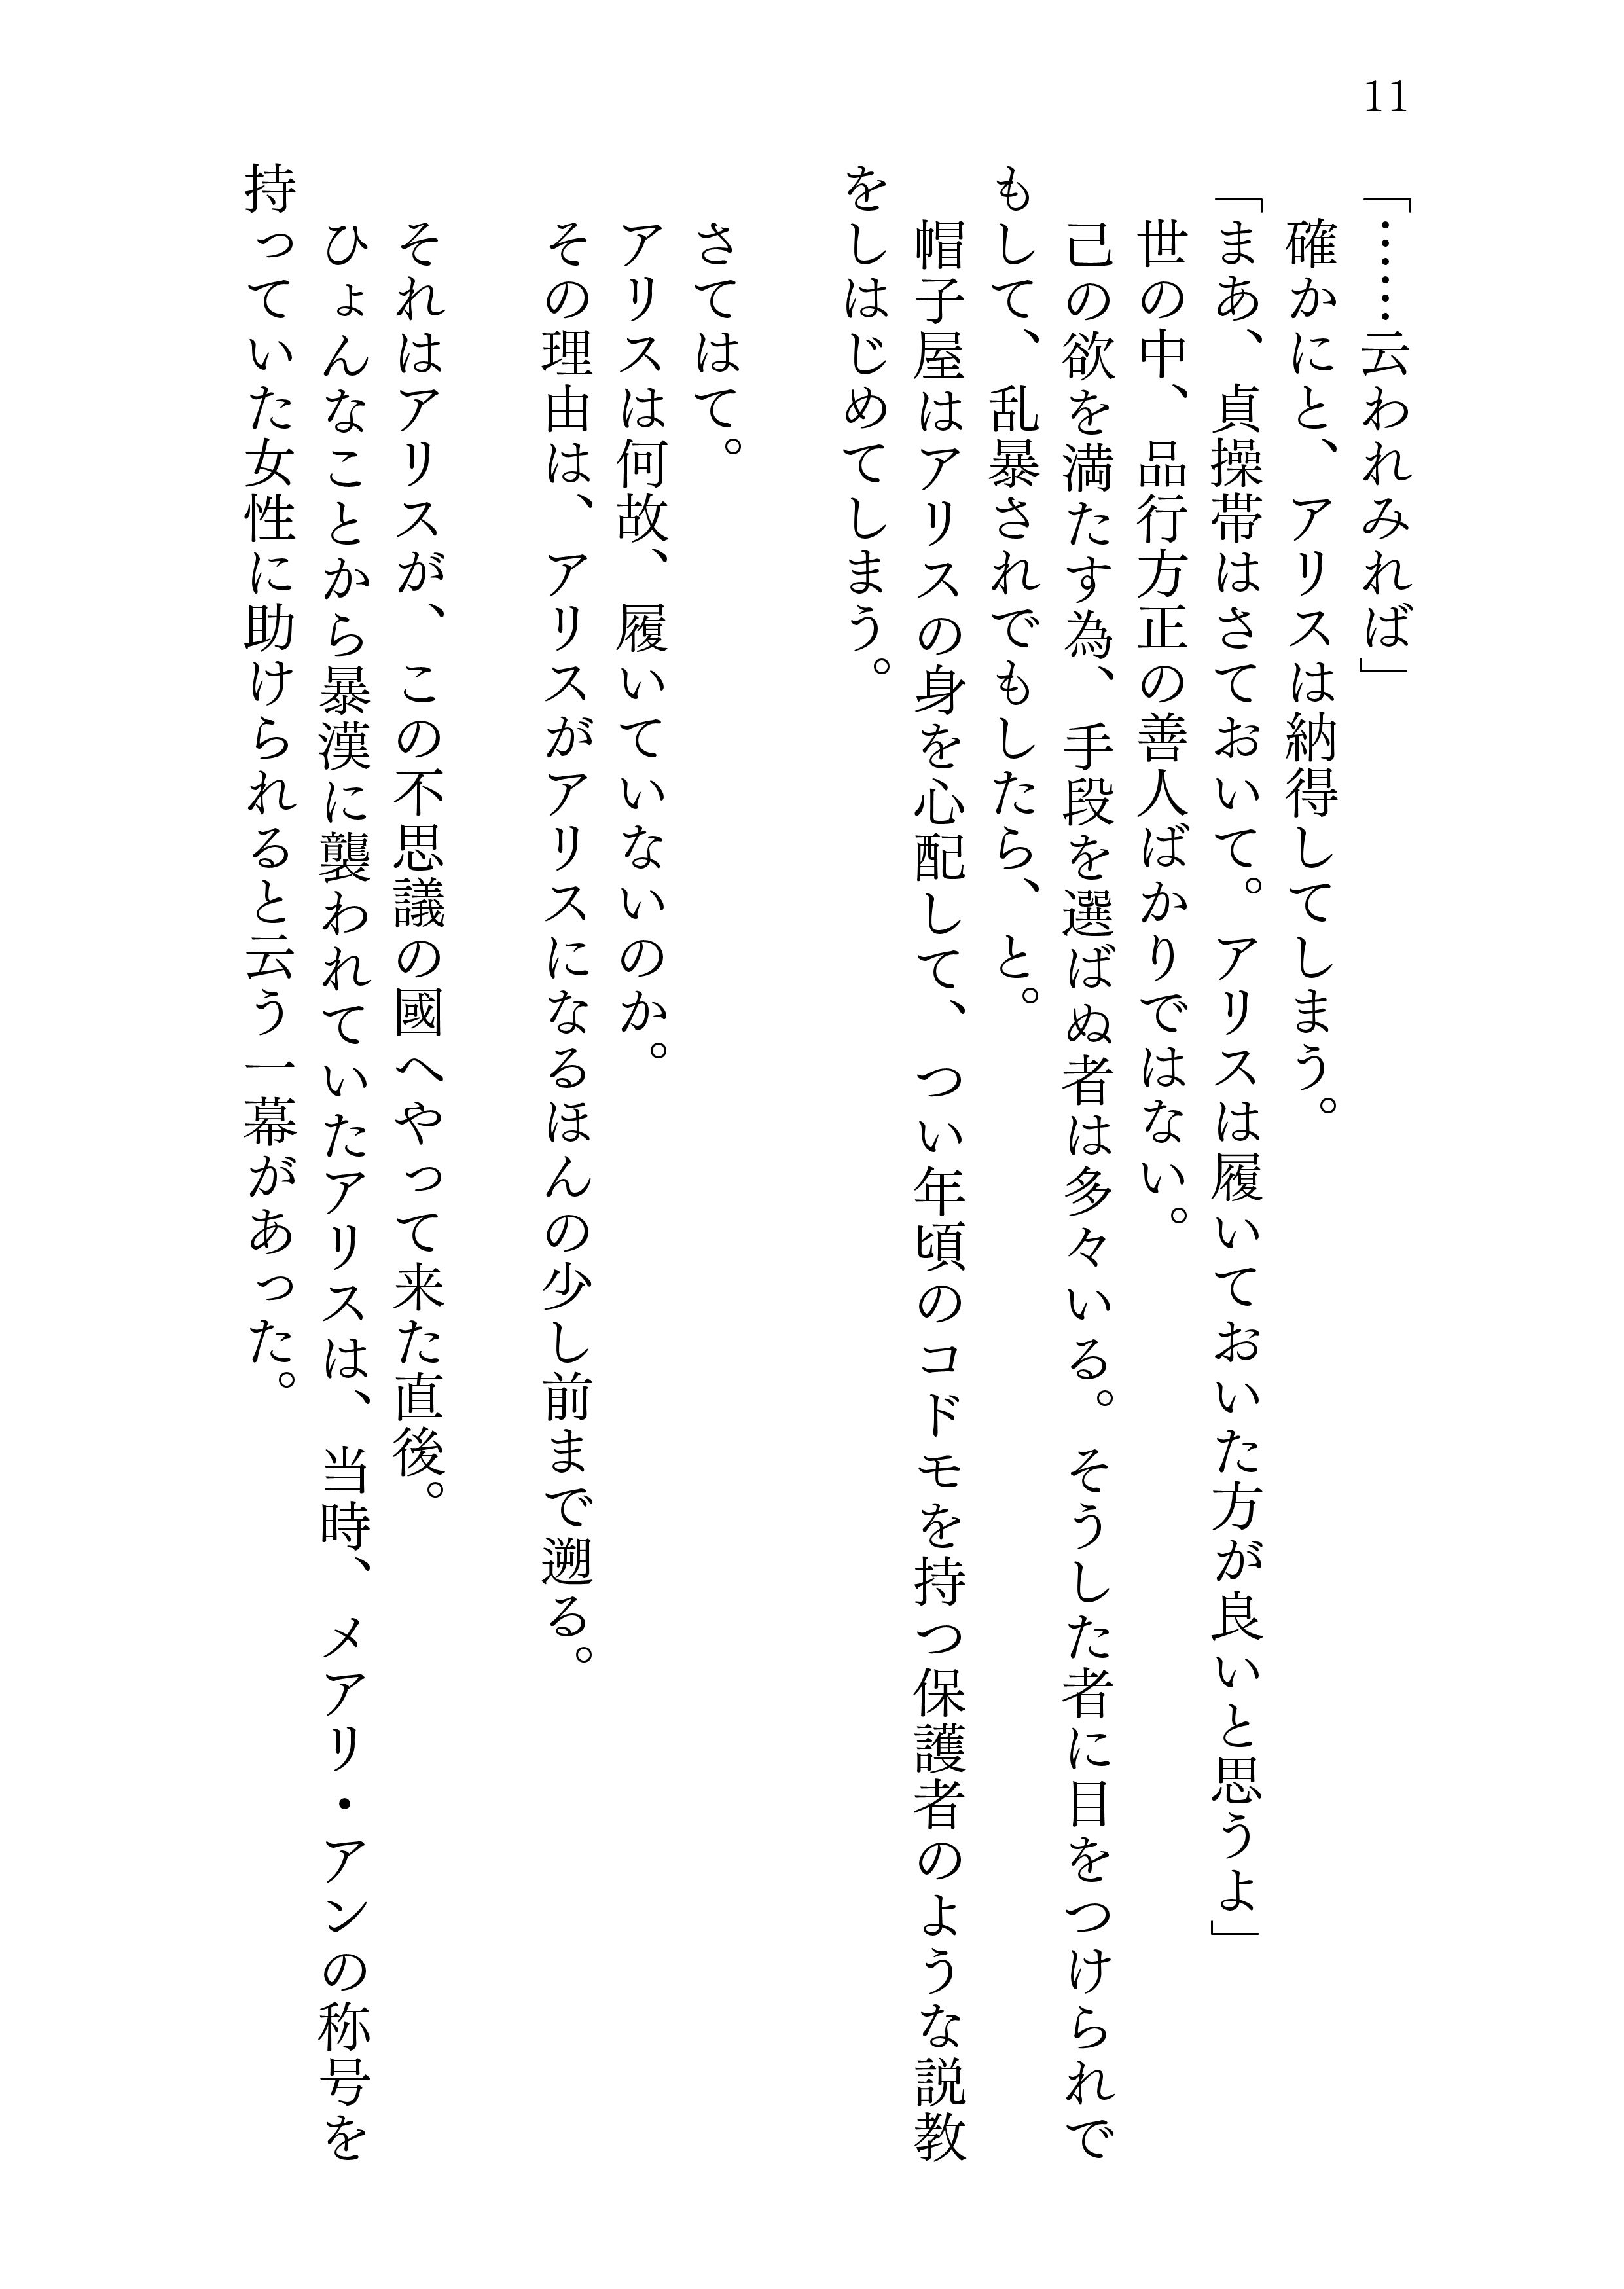 11
「……云われみれば」
確かにと、アリスは納得してしまう。
「まあ、貞操帯はさておいて。アリスは履いておいた方が良いと思うよ」
世の中、品行方正の善人ばかりではない。
己の欲を満たす為、手段を選ばぬ者は多々いる。そうした者に目をつけられで
もして、乱暴されでもしたら、と。
帽子屋はアリスの身を心配して、つい年頃のコドモを持つ保護者のような説教
をしはじめてしまう。
さてはて。
アリスは何故、履いていないのか。
その理由は、アリスがアリスになるほんの少し前まで遡る。
それはアリスが、この不思議の國へやって来た直後。
ひょんなことから暴漢に襲われていたアリスは、当時、メアリ・アンの称号を
持っていた女性に助けられると云う一幕があった。